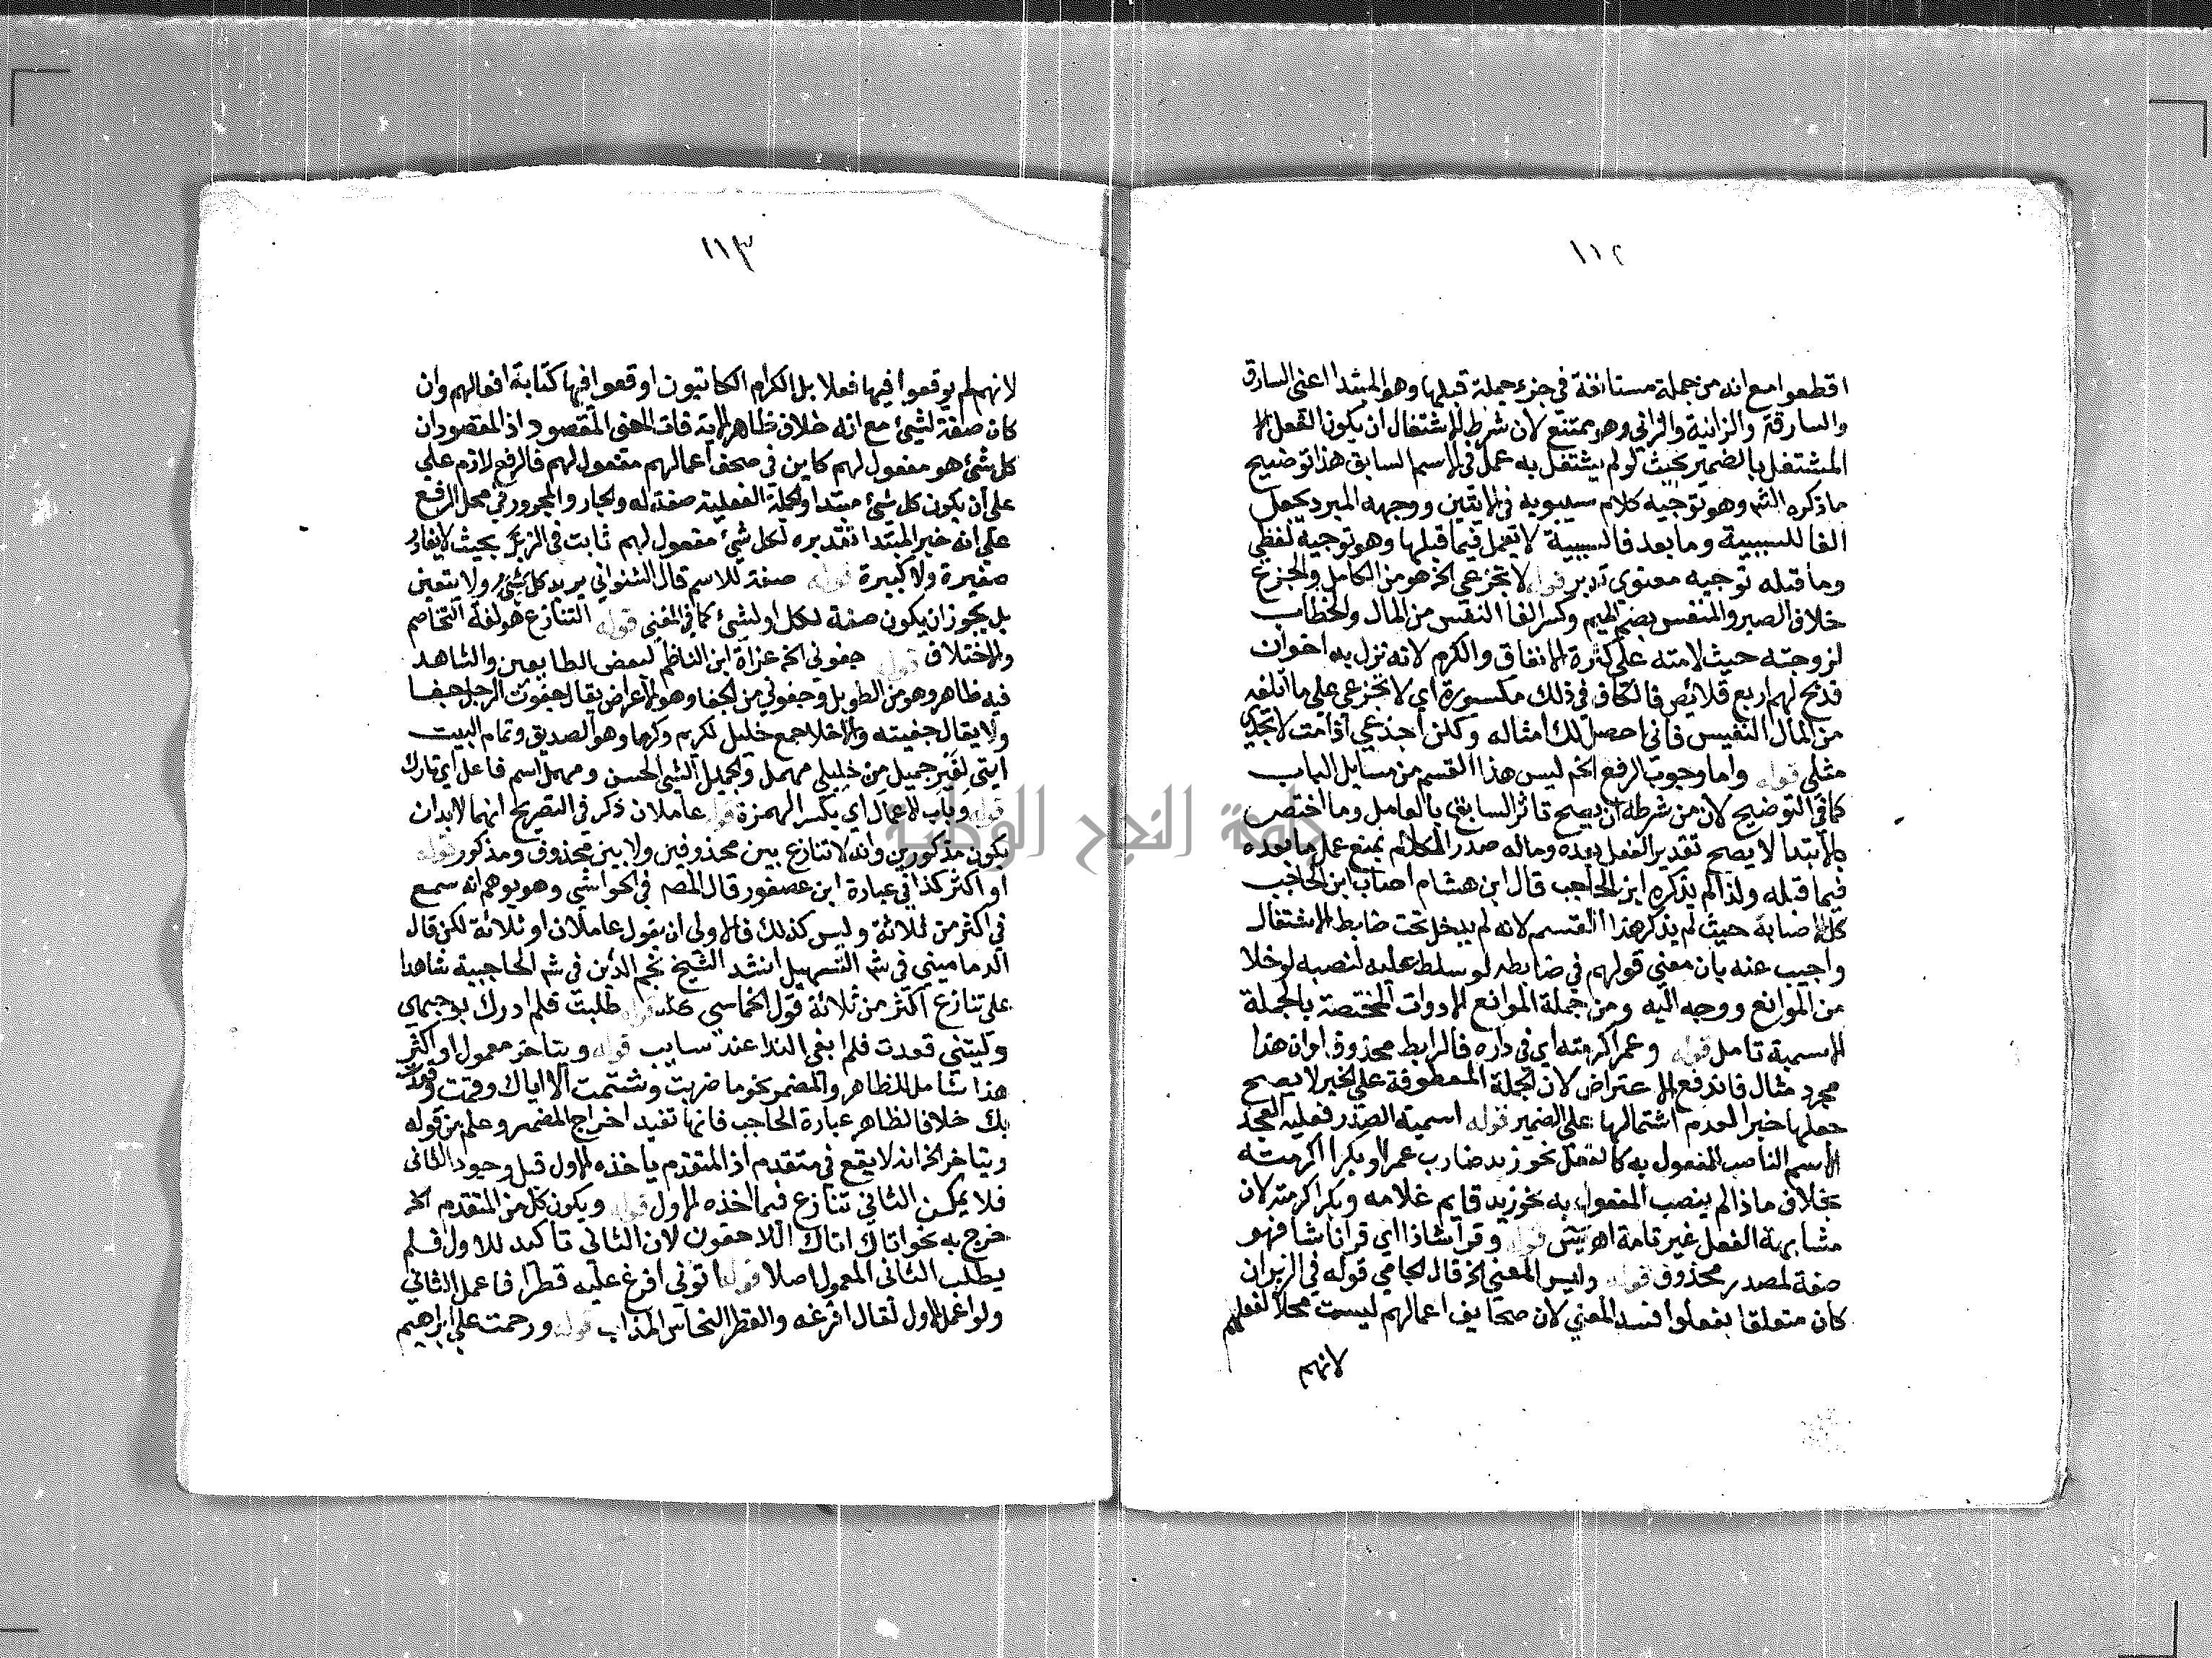 ١١٢
اقطعوا مع انه من جملة مستانفة في جزء جملة قبلها وهو المبتدا اعني السارق
والسارقة والزانية والزاني وهو ممتنع لان شرط الاشتغال ان يكون الفعل
المشتغل بالضمير بحيث لو لم يشتغل به عمل في الاسم السابق هذا توضيح
ما ذكره الشم وهو توجيه كلام سيبويه في الايتين ووجهه المبرد بجعل
الفا للسببية وما بعد فا السببية لا يعمل فيما قبلها وهو توجيه لفظي
وما قبله توجيه معنوي تدبر قوله لا تجزعي الخ هو من الكامل والجزع
خلاف الصبر والمنفس بضم الميم وكسر الفا النفيس من المال والخطاب
لزوجته حيث لامته على كثرة الانفاق والكرم لانه نزل به اخوان
فذبح لهم اربع قلائص فالكاف في ذلك مكسورة اي لا تجزعي على ما اتلفه
من المال النفيس فاني احصل لك امثاله وكلن اجزعي اذا مت لا تجدي
مثلي قوله واما وجوب الرفع الخ ليس هذا القسم من مسايل الباب
كما في التوضيح لان من شرطه ان يصح تاثر السابق بالعامل وما اختص
بالابتدا لا يصح تقدير الفعل بعده وماله صدر الكلام يمنع عمل ما بعده
فيما قبله ولذا لم يذكره ابن الحاجب قال ابن هشام اصاب ابن الحاجب
كل الاصابة حيث لم يذكر هذا القسم لانه لم يدخل تحت ضابط الاشتغال
واجيب عنه بان معنى قولهم في ضابطه لو سلط عليه لنصبه لو خلا
من الموانع ووجه اليه ومن جملة الموانع الادوات المختصة بالجملة
الاسمية تامل قوله وعمرا اكرمته اي في داره فالرابط محذوف او ان هذا
مجرد مثال فاندفع الاعتراض لان الجملة المعطوفة على الخبر لا يصح
جعلها خبرا لعدم اشتمالها على الضمير قوله اسمية الصدر فعلية العجز
الاسم الناصب للمفعول به كالفعل نحو زيد ضارب عمرا وبكرا اكرمته
بخلاف ماذا لم ينصب المفعول به نحو زيد قايم غلامه وبكرا كرمته لان
مشابهة الفعل غير تامة اهـ يس قوله وقرا شاذا اي قرانا شا فهو
صفة لمصدر محذوف قوله وليس المعني الخ قال الجامي قوله في الزبر ان
كان متعلقا بفعلوا فسد المعني لان صحايف اعمالهم ليست محلا لفعلهم
لانهم
١١٣
لانهم لم يوقعوا فيها فعلا بل الكرام الكاتبون اوقعوا فيها كتابة افعالهم وان
كان صفة لشيئ مع انه خلاف ظاهر الاية فات المعنى المقصود اذ المقصود ان
كل شيئ هو مفعول لهم كاين في صحف اعمالهم مفعول لهم فالرفع لازم علي
علي ان يكون كل شيئ مبتدا والجملة الفعلية صفة له والجار والمجرور في محل الرفع
علي انه خبر المبتدا تقديره لكل شيئ مفعول لهم ثابت في الزبر بحيث لا يغادر
صغيرة ولا كبيرة قوله صفة للاسم قال الشنواني يريد كل شيئ ولا يتعين
بل يجوز ان يكون صفة لكل او لشيئ كما في المغني قوله التنازع هو لغة التخاصم
والاختلاف قوله جفوني الخ عزاه ابن الناظم لبعض الطايعين والشاهد
فيه ظاهر وهو من الطويل وجفوني من الجفا وهو الاعراض يقال جفوت الرجل جفا
ولا يقال جفيته والاخلا جمع خليل لكريم وكرما وهو الصديق وتمام البيت
انني لغير جميل من خليلي مهمل والجميل الشي الحسن ومهمل اسم فاعل اي تارك
قوله وباب الاعمال اي بكسر الهمزة قوله عاملان ذكر في التصريح انهما لابد ان
يكون مذكورين وانه لا تنازع بين محذوفين ولا بين محذوف ومذكور قوله
او اكثر كذا في عبارة ابن عصفور قال المصم في الحواشي وهو يوهم انه سمع
في اكثر من ثلاثة وليس كذلك فالاولى ان يقول عاملان او ثلاثة لكن قال
الدماميني في شم التسهيل انشد الشيخ نجم الدين في شم الحاجبية شاهدا
على تنازع اكثر من ثلاثة قول الحماسي طلبت فلم ادرك بوجهي
وليتني قعدت فلم ابغي الندا عند سايب قوله ويتاخر معمول او اكثر
هذا شامل للظاهر والمضمر نحو ما ضربت وشتمت الا اياك وقمت وقعدت
بك خلافا لظاهر عبارة الحاجب فانها تفيد اخراج المضمر وعلم من قوله
ويتاخر الخ انه لا يقع في متقدم اذ المتقدم ياخذه الاول قبل وجود الثاني
فلا يمكن الثاني تنازع فيما اخذه الاول قوله ويكون كل من المتقدم الخ
خرج به نحو اتاك اتاك اللاحقون لان الثاني تاكيد للاول فلم
يطلب الثاني المعمول اصلا قوله اتوني افرغ عليه قطرا فاعمل الثاني
ولو اعمل الاول لقال افرغه والقطر النحاس المذاب قوله ورحمت علي ابراهيم
جامعة النجاح الوطنية